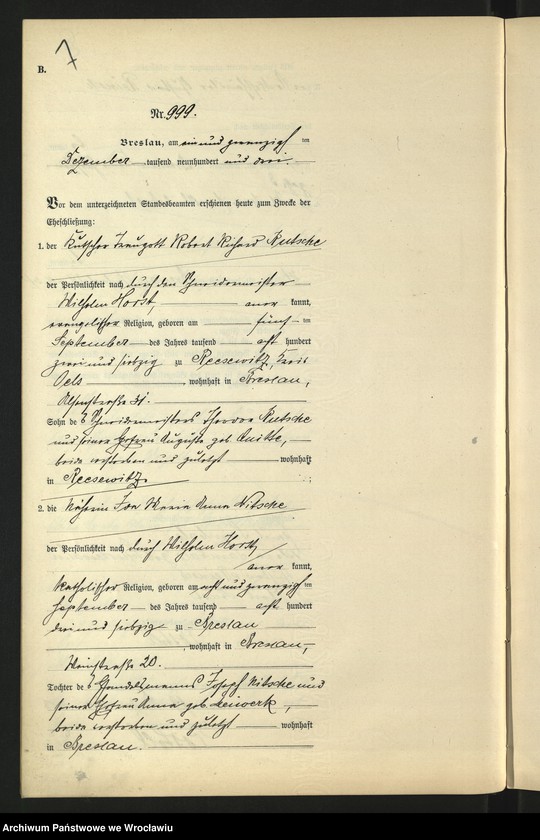 B.
7
Nr. 999.
Breslau, am ein und zwanzigsten
Dezember tausend neunhundert und drei.
Vor dem unterzeichneten Standesbeamten erschienen heute zum Zwecke der
Eheschließung:
1. der Kutscher Traugott Robert Richard Kutsche
der Persönlichkeit nach durch den Schneidermeister
Wilhelm Horst, anerkannt,
evangelischer Religion, geboren am fünften
September des Jahres tausend acht hundert
zwei und siebzig zu Reesewitz, Kreis
Oels, wohnhaft in Breslau,
31.
Sohn des Schneidermeisters Theodor Kutsche
und seiner Ehefrau Auguste geb.
beide verstorben und zuletzt wohnhaft
in Reesewitz.
2. die Näherin Ida Maria Anna Nitsche
der Persönlichkeit nach durch Wilhelm Horst,
anerkannt,
katholischer Religion, geboren am acht und zwanzigsten
September des Jahres tausend acht hundert
drei und siebzig zu Breslau
, wohnhaft in Breslau,
20.
Tochter des Handelsmanns Joseph Nitsche und
seiner Ehefrau Anna geb.
beide verstorben und zuletzt wohnhaft
in Breslau.
Archiwum Państwowe we Wrocławiu